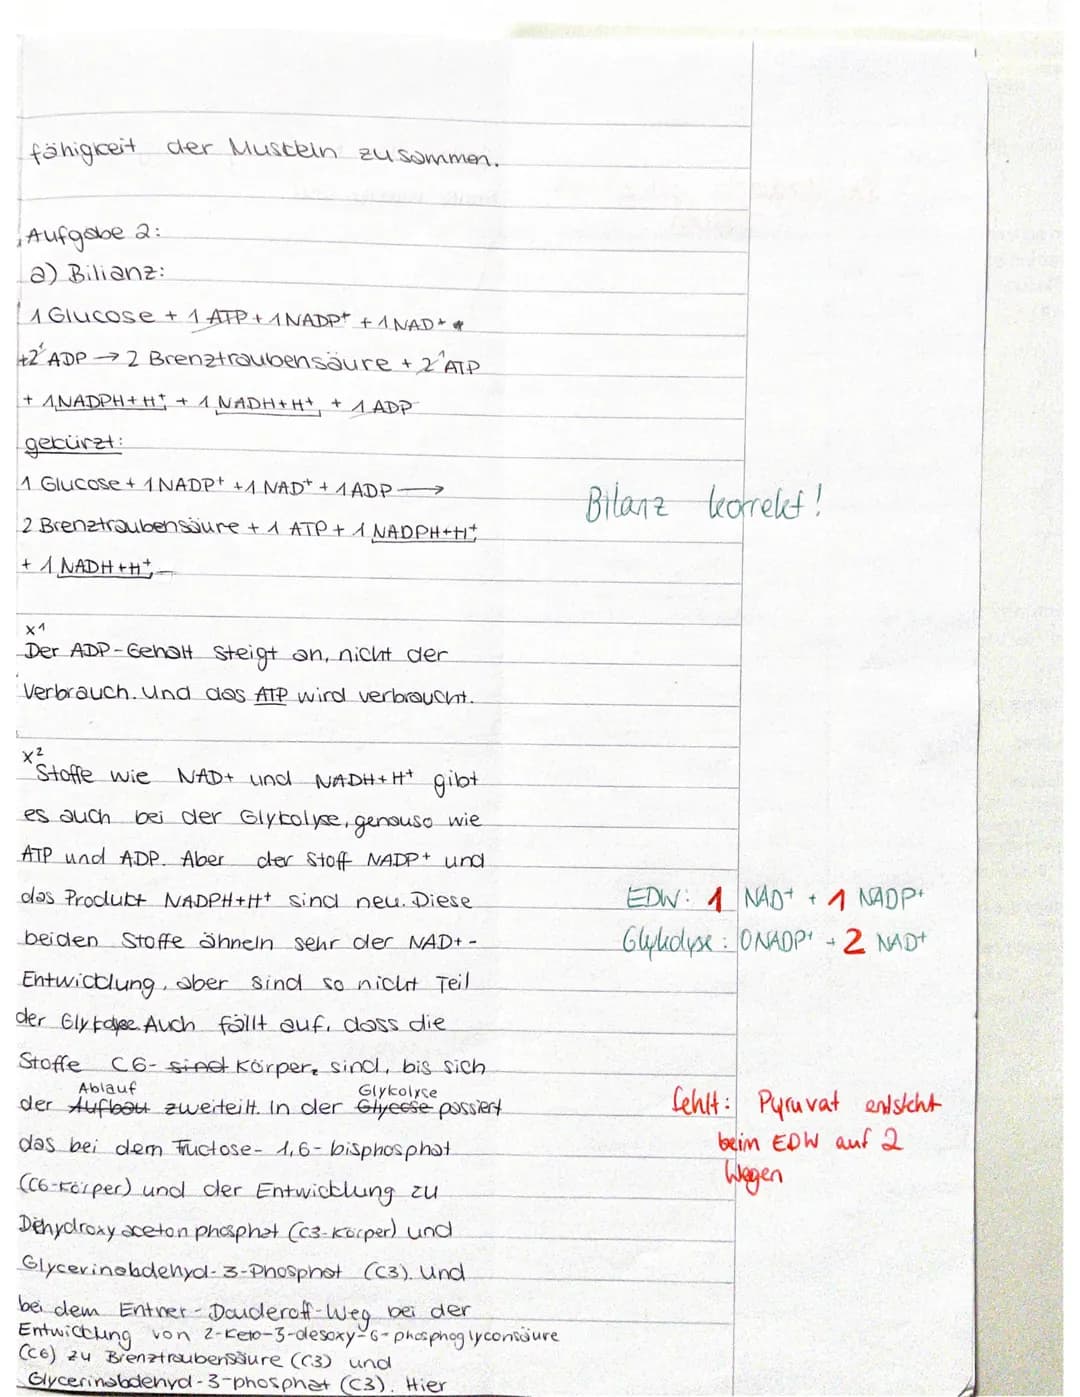 fähigkeit der Muskeln zusammen.
Aufgabe 2:
a) Bilianz:
1 Glucose + 1 ATP + 1 NADP+ + 1 NAD+
+2 ADP → 2 Brenztraubensäure + 2 ATP
+ 1 NADPH+H+ + 1 NADH+H+ + 1 ADP
gekürzt:
1 Glucose + 1 NADP+ + 1 NAD+ + 1 ADP →
Bilanz korrekt!
2 Brenztraubensäure + 1 ATP + 1 NADPH+H+
+ 1 NADH+H+
x1
Der ADP-Gehalt steigt an, nicht der
Verbrauch. Und das ATP wird verbraucht.
x2
Stoffe wie NAD+ und NADH+H+ gibt
es auch bei der Glykolyse, genauso wie
ATP und ADP. Aber der Stoff NADP+ und
das Produkt NADPH+H+ sind neu. Diese
EDW: 1 NAD+ + 1 NADP+
beiden Stoffe ähneln sehr der NAD+-
Glykolyse: 0 NADP+ + 2 NAD+
Entwicklung, aber sind so nicht Teil
der Glykolyse. Auch fällt auf, dass die
Stoffe C6- sind Körper, sind, bis sich
Ablauf Glykolyse
der Aufbau zweiteilt. In der Glycose passiert
fehlt: Pyruvat entsteht
beim EDW auf 2
Wegen
das bei dem Fructose-1,6-bisphosphat
(C6-Körper) und der Entwicklung zu
Dehydroxyacetonphosphat (C3-Körper) und
Glycerinaldehyd-3-Phosphat (C3). Und
bei dem Entner-Douderoff-Weg bei der
Entwicklung von 2-Keto-3-desoxy-6-phosphoglyconsäure
(C6) zu Brenztraubensäure (C3) und
Glycerinaldehyd-3-phosphat (C3). Hier